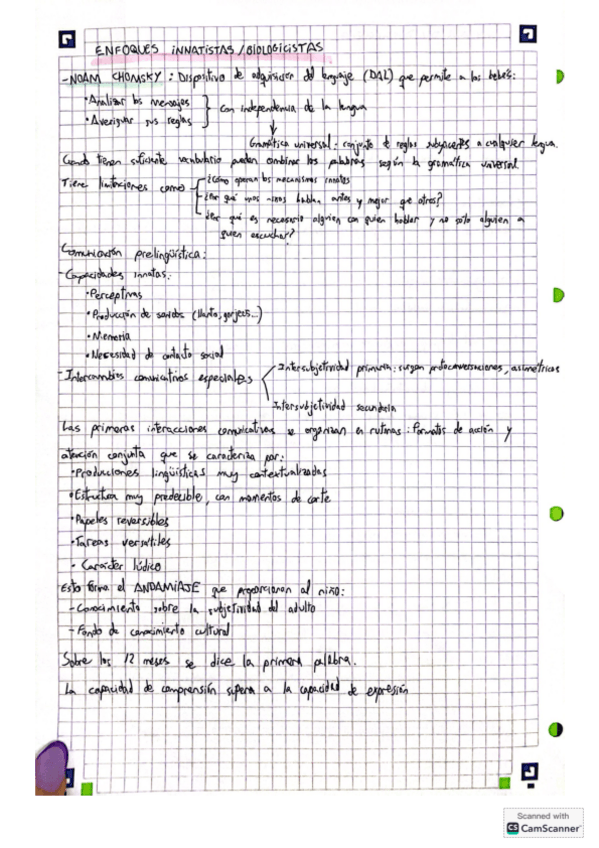 ENFOQUES INNATISTAS/BIOLOGICISTAS
-NOAM CHOMSKY: Dispositivo de adquisicion del lenguaje (DAL) que permite a los bebés:
•Analizar los mensajes
•Averiguar sus reglas
con independencia de la lengua
Gramática universal: conjunto de reglas subyacentes a cualquier lengua.
Cuando tienen suficiente vocabulario pueden combinar las palabras según la gramática universal
Tiene limitaciones como
-¿Cómo operan los mecanismos innatos
-¿Por qué unos niños hablan antes y mejor que otros?
-¿Por qué es necesario alguien con quien hablar y no solo alguien a
quien escuchar?
Comunicación prelingüística:
-Capacidades innatas:
•Perceptivas
•Producción de sonidos (llanto, gorjeos...)
•Memoria
•Necesidad de contacto social
-Intercambios comunicativos especiales
Intersubjetividad primaria: surgen protoconversaciones, asimétricas
Intersubjetividad secundaria
Las primeras interacciones comunicativas se organizan en rutinas: formatos de acción y
atención conjunta que se caracteriza por:
•Producciones lingüísticas muy contextualizadas
•Estructura muy predecible, con momentos de corte
•Papeles reversibles
•Tareas versátiles
• Carácter lúdico
Esto forma el ANDAMIAJE que proporcionan al niño:
-Conocimiento sobre la subjetividad del adulto
-Fondo de conocimiento cultural
Sobre los 12 meses se dice la primera palabra.
La capacidad de comprensión supera a la capacidad de expresión
Scanned with
CS CamScanner